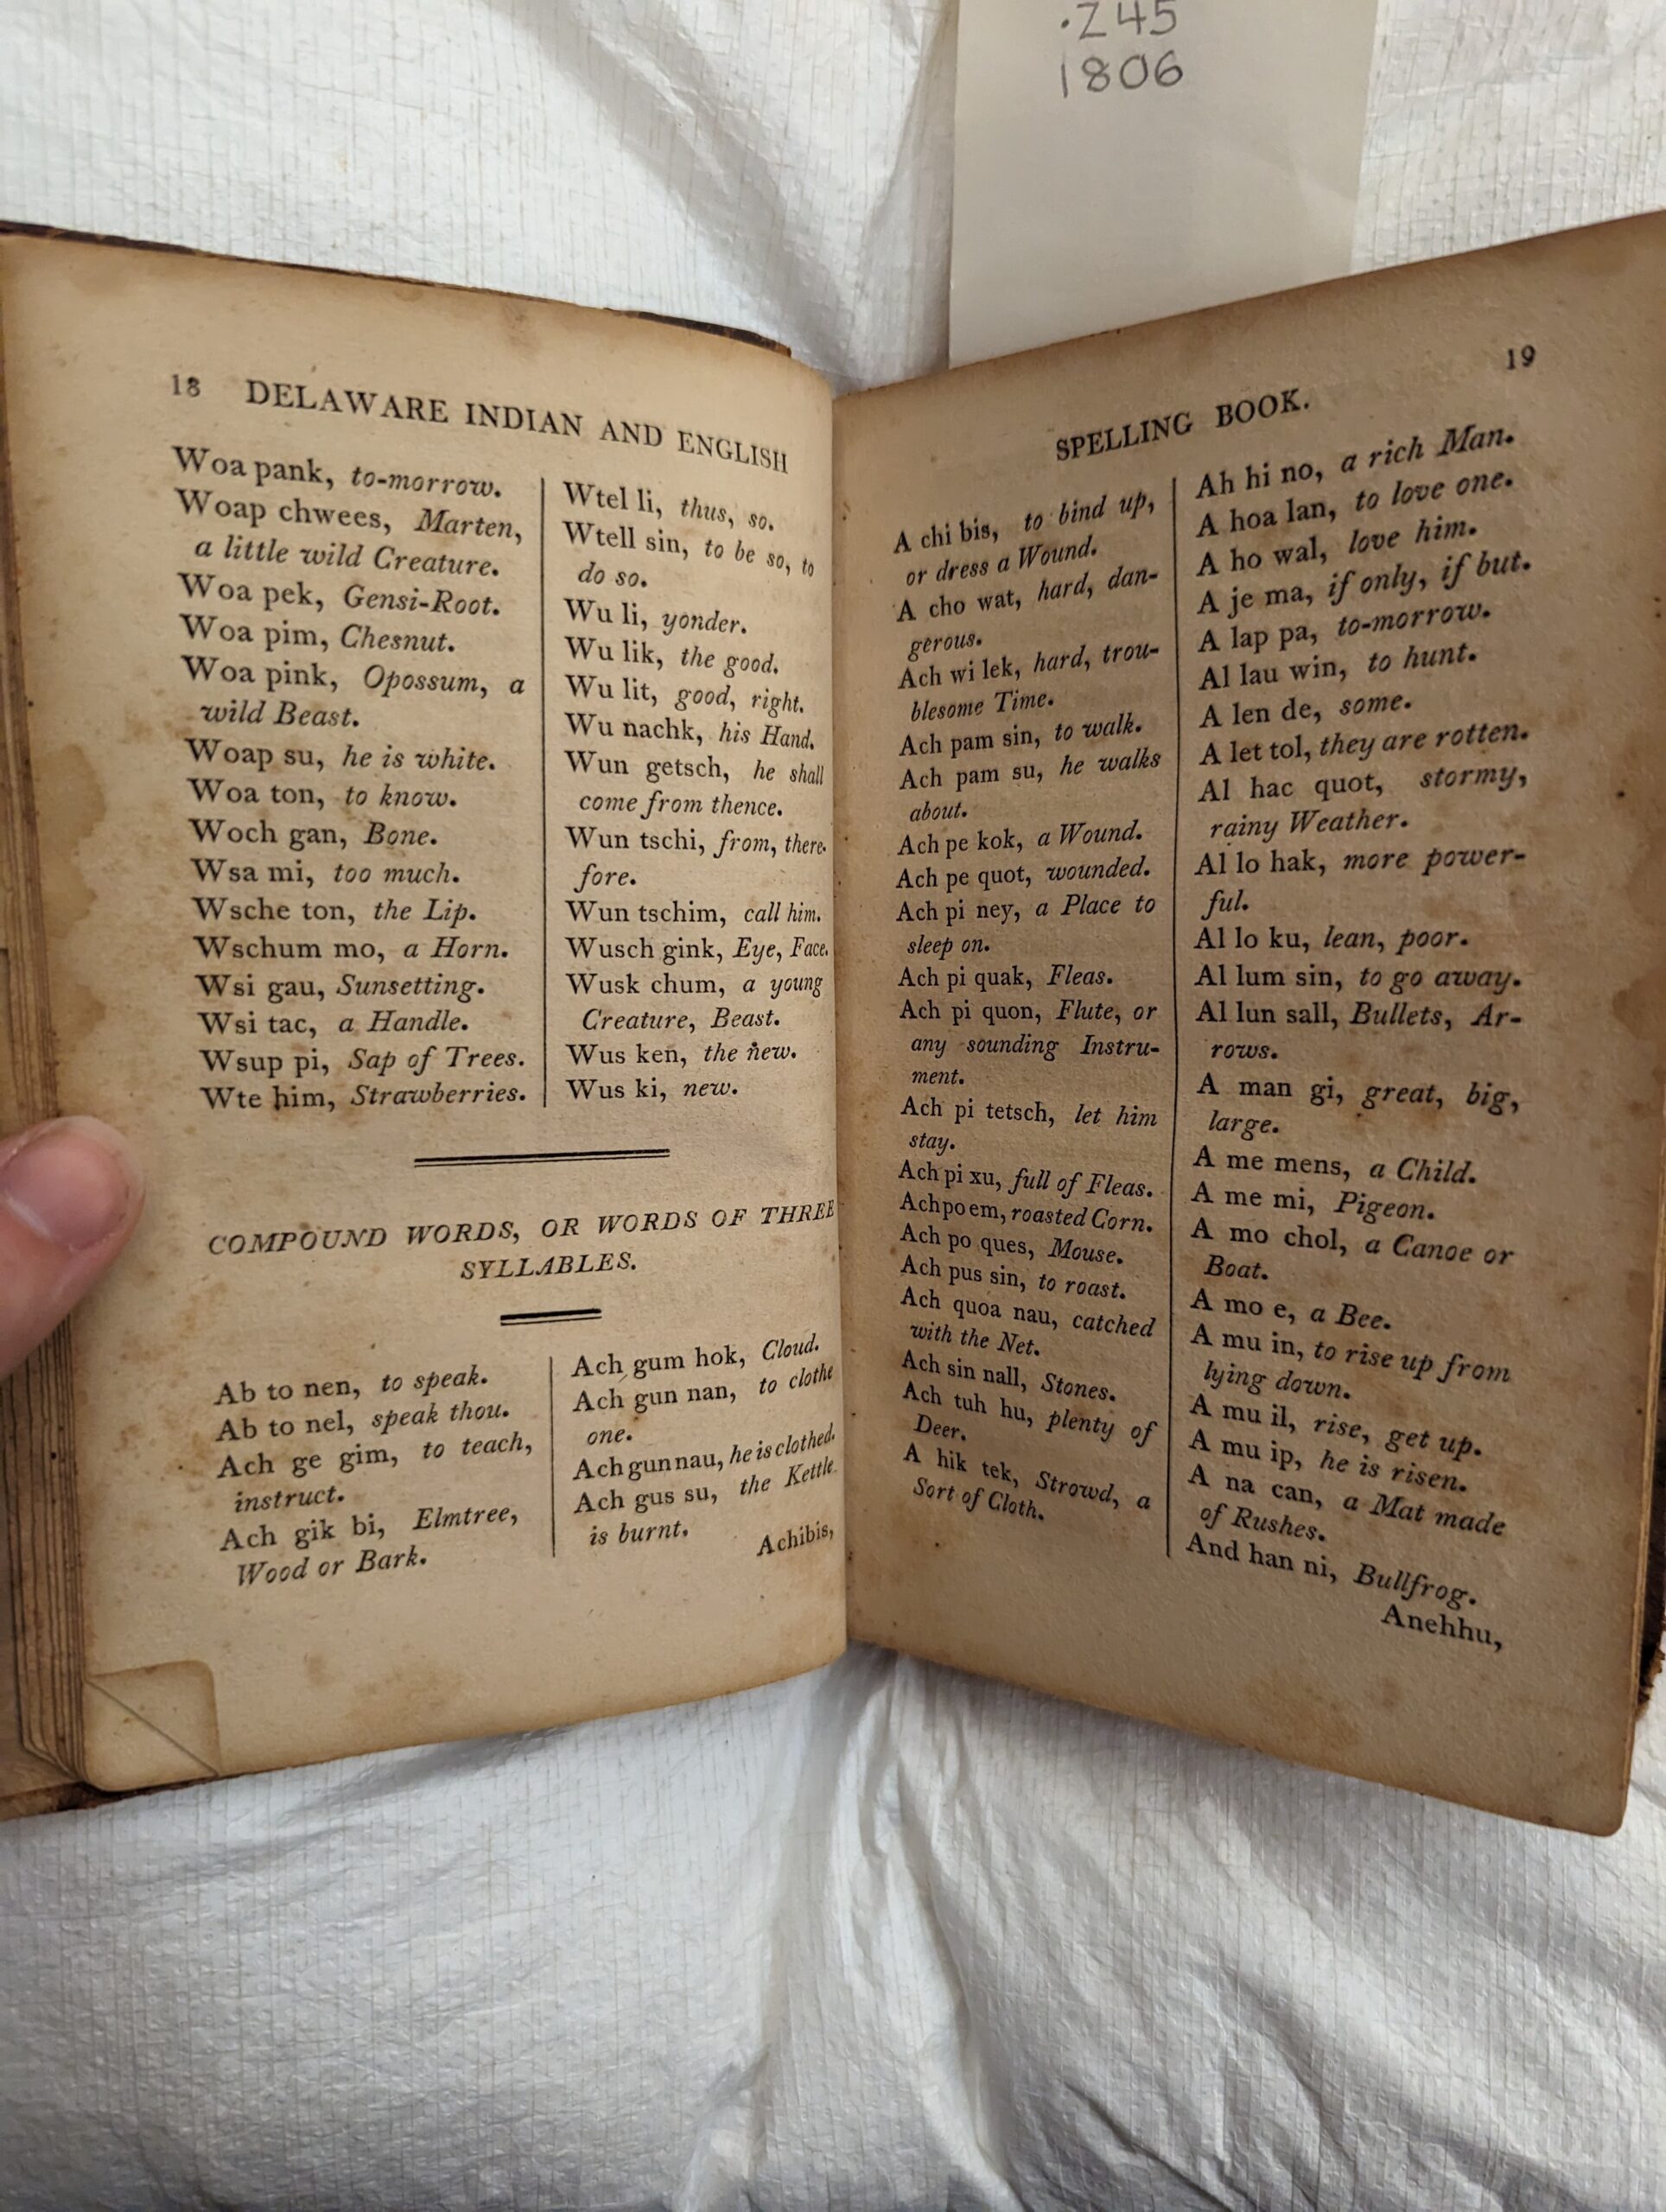 .Z45
1806
18 DELAWARE INDIAN AND ENGLISH
Woa pank, to-morrow.
Woap chwees, Marten,
a little wild Creature.
Woa pek, Gensi-Root.
Woa pim, Chesnut.
Woa pink, Opossum, a
wild Beast.
Woap su, he is white.
Woa ton, to know.
Woch gan, Bone.
Wsa mi, too much.
Wsche ton, the Lip.
Wschum mo, a Horn.
Wsi gau, Sunsetting.
Wsi tac, a Handle.
Wsup pi, Sap of Trees.
Wte him, Strawberries.
Wtel li, thus, so.
Wtell sin, to be so, to
do so.
Wu li, yonder.
Wu lik, the good.
Wu lit, good, right.
Wu nachk, his Hand.
Wun getsch, he shall
come from thence.
Wun tschi, from, there-
fore.
Wun tschim, call him.
Wusch gink, Eye, Face.
Wusk chum, a young
Creature, Beast.
Wus ken, the new.
Wus ki, new.
COMPOUND WORDS, OR WORDS OF THREE
SYLLABLES.
Ab to nen, to speak.
Ab to nel, speak thou.
Ach ge gim, to teach,
instruct.
Ach gik bi, Elmtree,
Wood or Bark.
Ach gum hok, Cloud.
Ach gun nan, to clothe
one.
Ach gun nau, he is clothed.
Ach gus su, the Kettle
is burnt.
Achibis,
SPELLING BOOK. 19
A chi bis, to bind up,
or dress a Wound.
A cho wat, hard, dan-
gerous.
Ach wi lek, hard, trou-
blesome Time.
Ach pam sin, to walk.
Ach pam su, he walks
about.
Ach pe kok, a Wound.
Ach pe quot, wounded.
Ach pi ney, a Place to
sleep on.
Ach pi quak, Fleas.
Ach pi quon, Flute, or
any sounding Instru-
ment.
Ach pi tetsch, let him
stay.
Ach pi xu, full of Fleas.
Ach po em, roasted Corn.
Ach po ques, Mouse.
Ach pus sin, to roast.
Ach quoa nau, catched
with the Net.
Ach sin nall, Stones.
Ach tuh hu, plenty of
Deer.
A hik tek, Strowd, a
Sort of Cloth.
Ah hi no, a rich Man.
A hoa lan, to love one.
A ho wal, love him.
A je ma, if only, if but.
A lap pa, to-morrow.
Al lau win, to hunt.
A len de, some.
A let tol, they are rotten.
Al hac quot, stormy,
rainy Weather.
Al lo hak, more power-
ful.
Al lo ku, lean, poor.
Al lum sin, to go away.
Al lun sall, Bullets, Ar-
rows.
A man gi, great, big,
large.
A me mens, a Child.
A me mi, Pigeon.
A mo chol, a Canoe or
Boat.
A mo e, a Bee.
A mu in, to rise up from
lying down.
A mu il, rise, get up.
A mu ip, he is risen.
A na can, a Mat made
of Rushes.
And han ni, Bullfrog.
Anehhu,